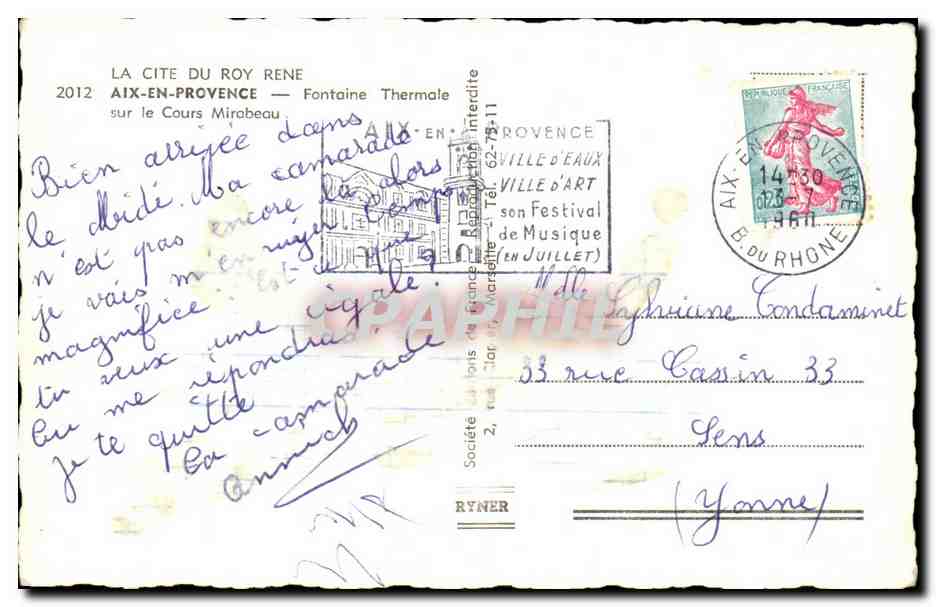 LA CITE DU ROY RENE
2012 AIX-EN-PROVENCE — Fontaine Thermale
sur le Cours Mirabeau
Bien arrivée dans
le Midi. Ma camarade
n'est pas encore là alors
je vais m'ennuyer temps
magnifice est-ce que
tu veux une cigale?
tu me répondras
je te quitte
ta camarade
Annick
AIX-EN-PROVENCE
VILLE D'EAUX
VILLE D'ART
son Festival
de Musique
(EN JUILLET)
REPUBLIQUE FRANÇAISE
AIX-EN-PROVENCE
14H30
23-7
1960
B. DU RHONE
Reproduction interdite
Marseille - Tél. 62-75-11
RYNER
CPAPHIL
Mlle Sylviane Condaminet
33 rue Cassin 33
Sens
(Yonne)